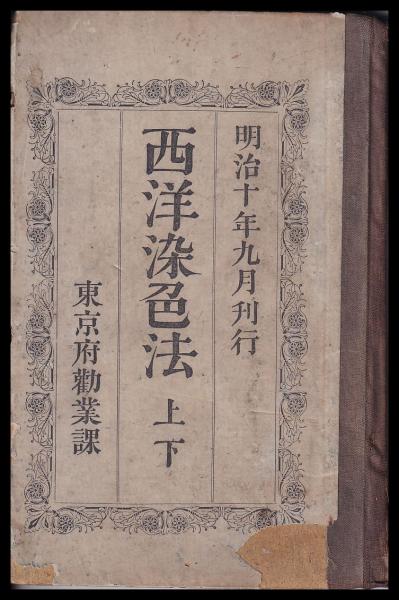 明治十年九月刊行
西洋染色法 上下
東京府勸業課